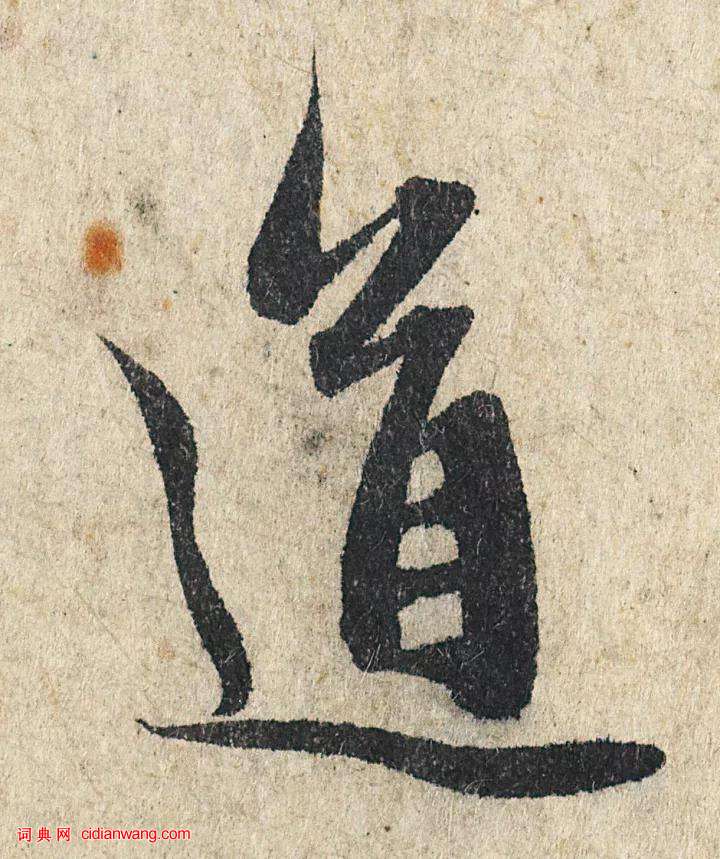 道
词典网 cidianwang.com